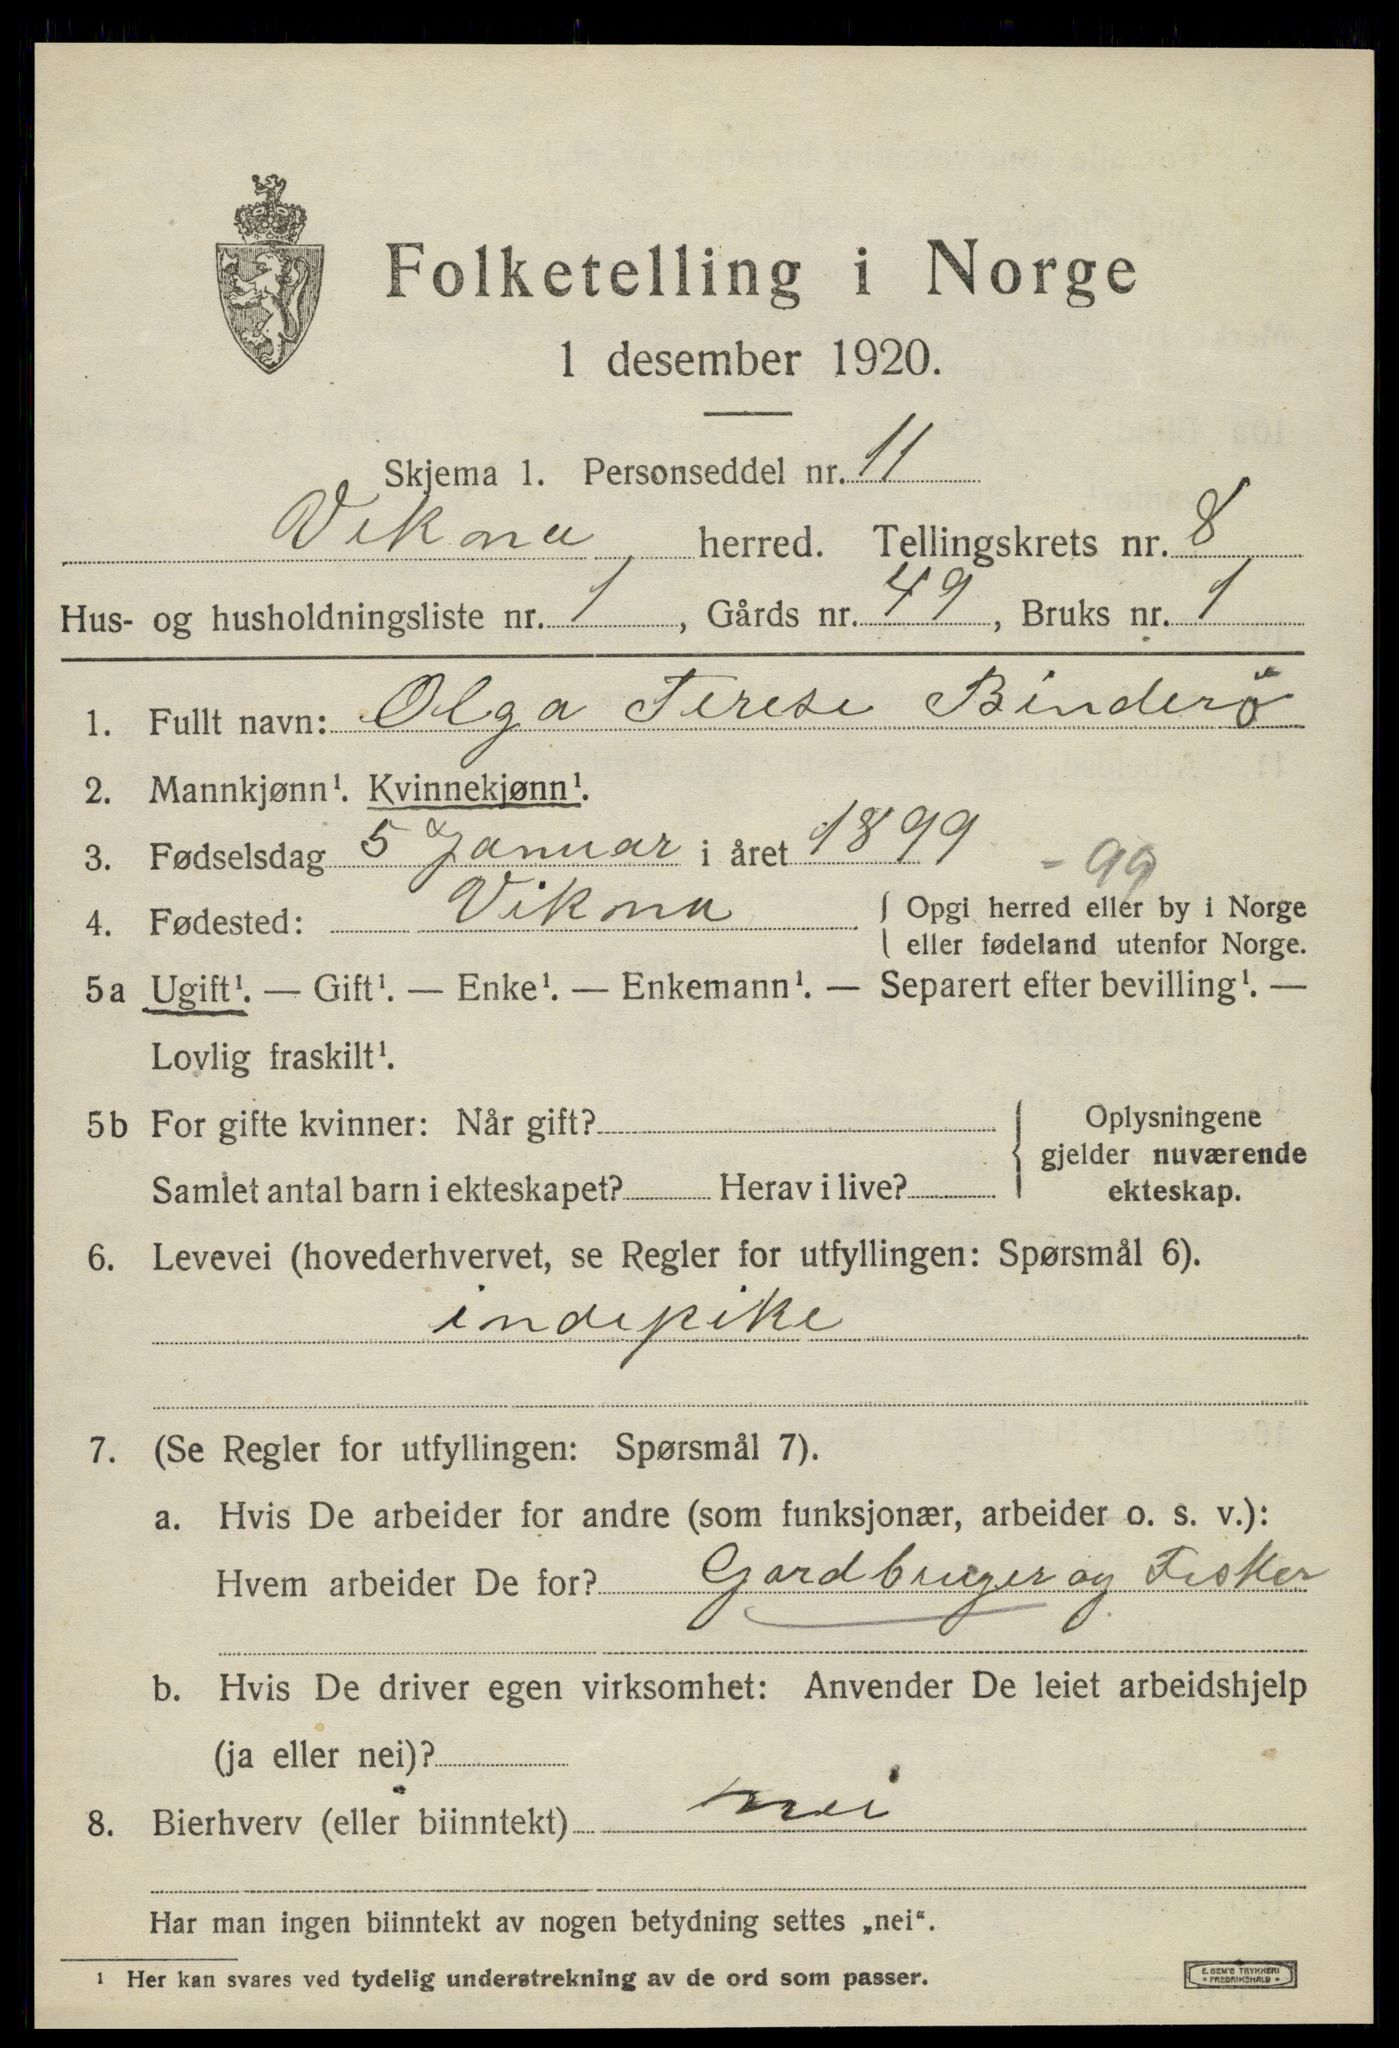 Folketelling i Norge
1 desember 1920.
Skjema 1. Personseddel nr. 11
Vikna herred. Tellingskrets nr. 8
Hus- og husholdningsliste nr. 1, Gårds nr. 49, Bruks nr. 1
1. Fullt navn: Olga Terese Binderö
2. Mannkjønn¹. Kvinnekjønn¹.
3. Fødselsdag 5 Januar i året 1899
- 99
4. Fødested: Vikna { Opgi herred eller by i Norge
eller fødeland utenfor Norge.
5a Ugift¹. — Gift¹. — Enke¹. — Enkemann¹. — Separert efter bevilling¹. —
Lovlig fraskilt¹.
5b For gifte kvinner: Når gift? { Oplysningene
gjelder nuværende
Samlet antal barn i ekteskapet? Herav i live? ekteskap.
6. Levevei (hovederhvervet, se Regler for utfyllingen: Spørsmål 6).
indepike
7. (Se Regler for utfyllingen: Spørsmål 7).
a. Hvis De arbeider for andre (som funksjonær, arbeider o. s. v.):
Hvem arbeider De for? Gardbruger og Fisker
b. Hvis De driver egen virksomhet: Anvender De leiet arbeidshjelp
(ja eller nei)?
8. Bierhverv (eller biinntekt) nei
Har man ingen biinntekt av nogen betydning settes „nei“.
¹ Her kan svares ved tydelig understrekning av de ord som passer.
E. SEM'S TRYKKERI
• FREDRIKSHALD •